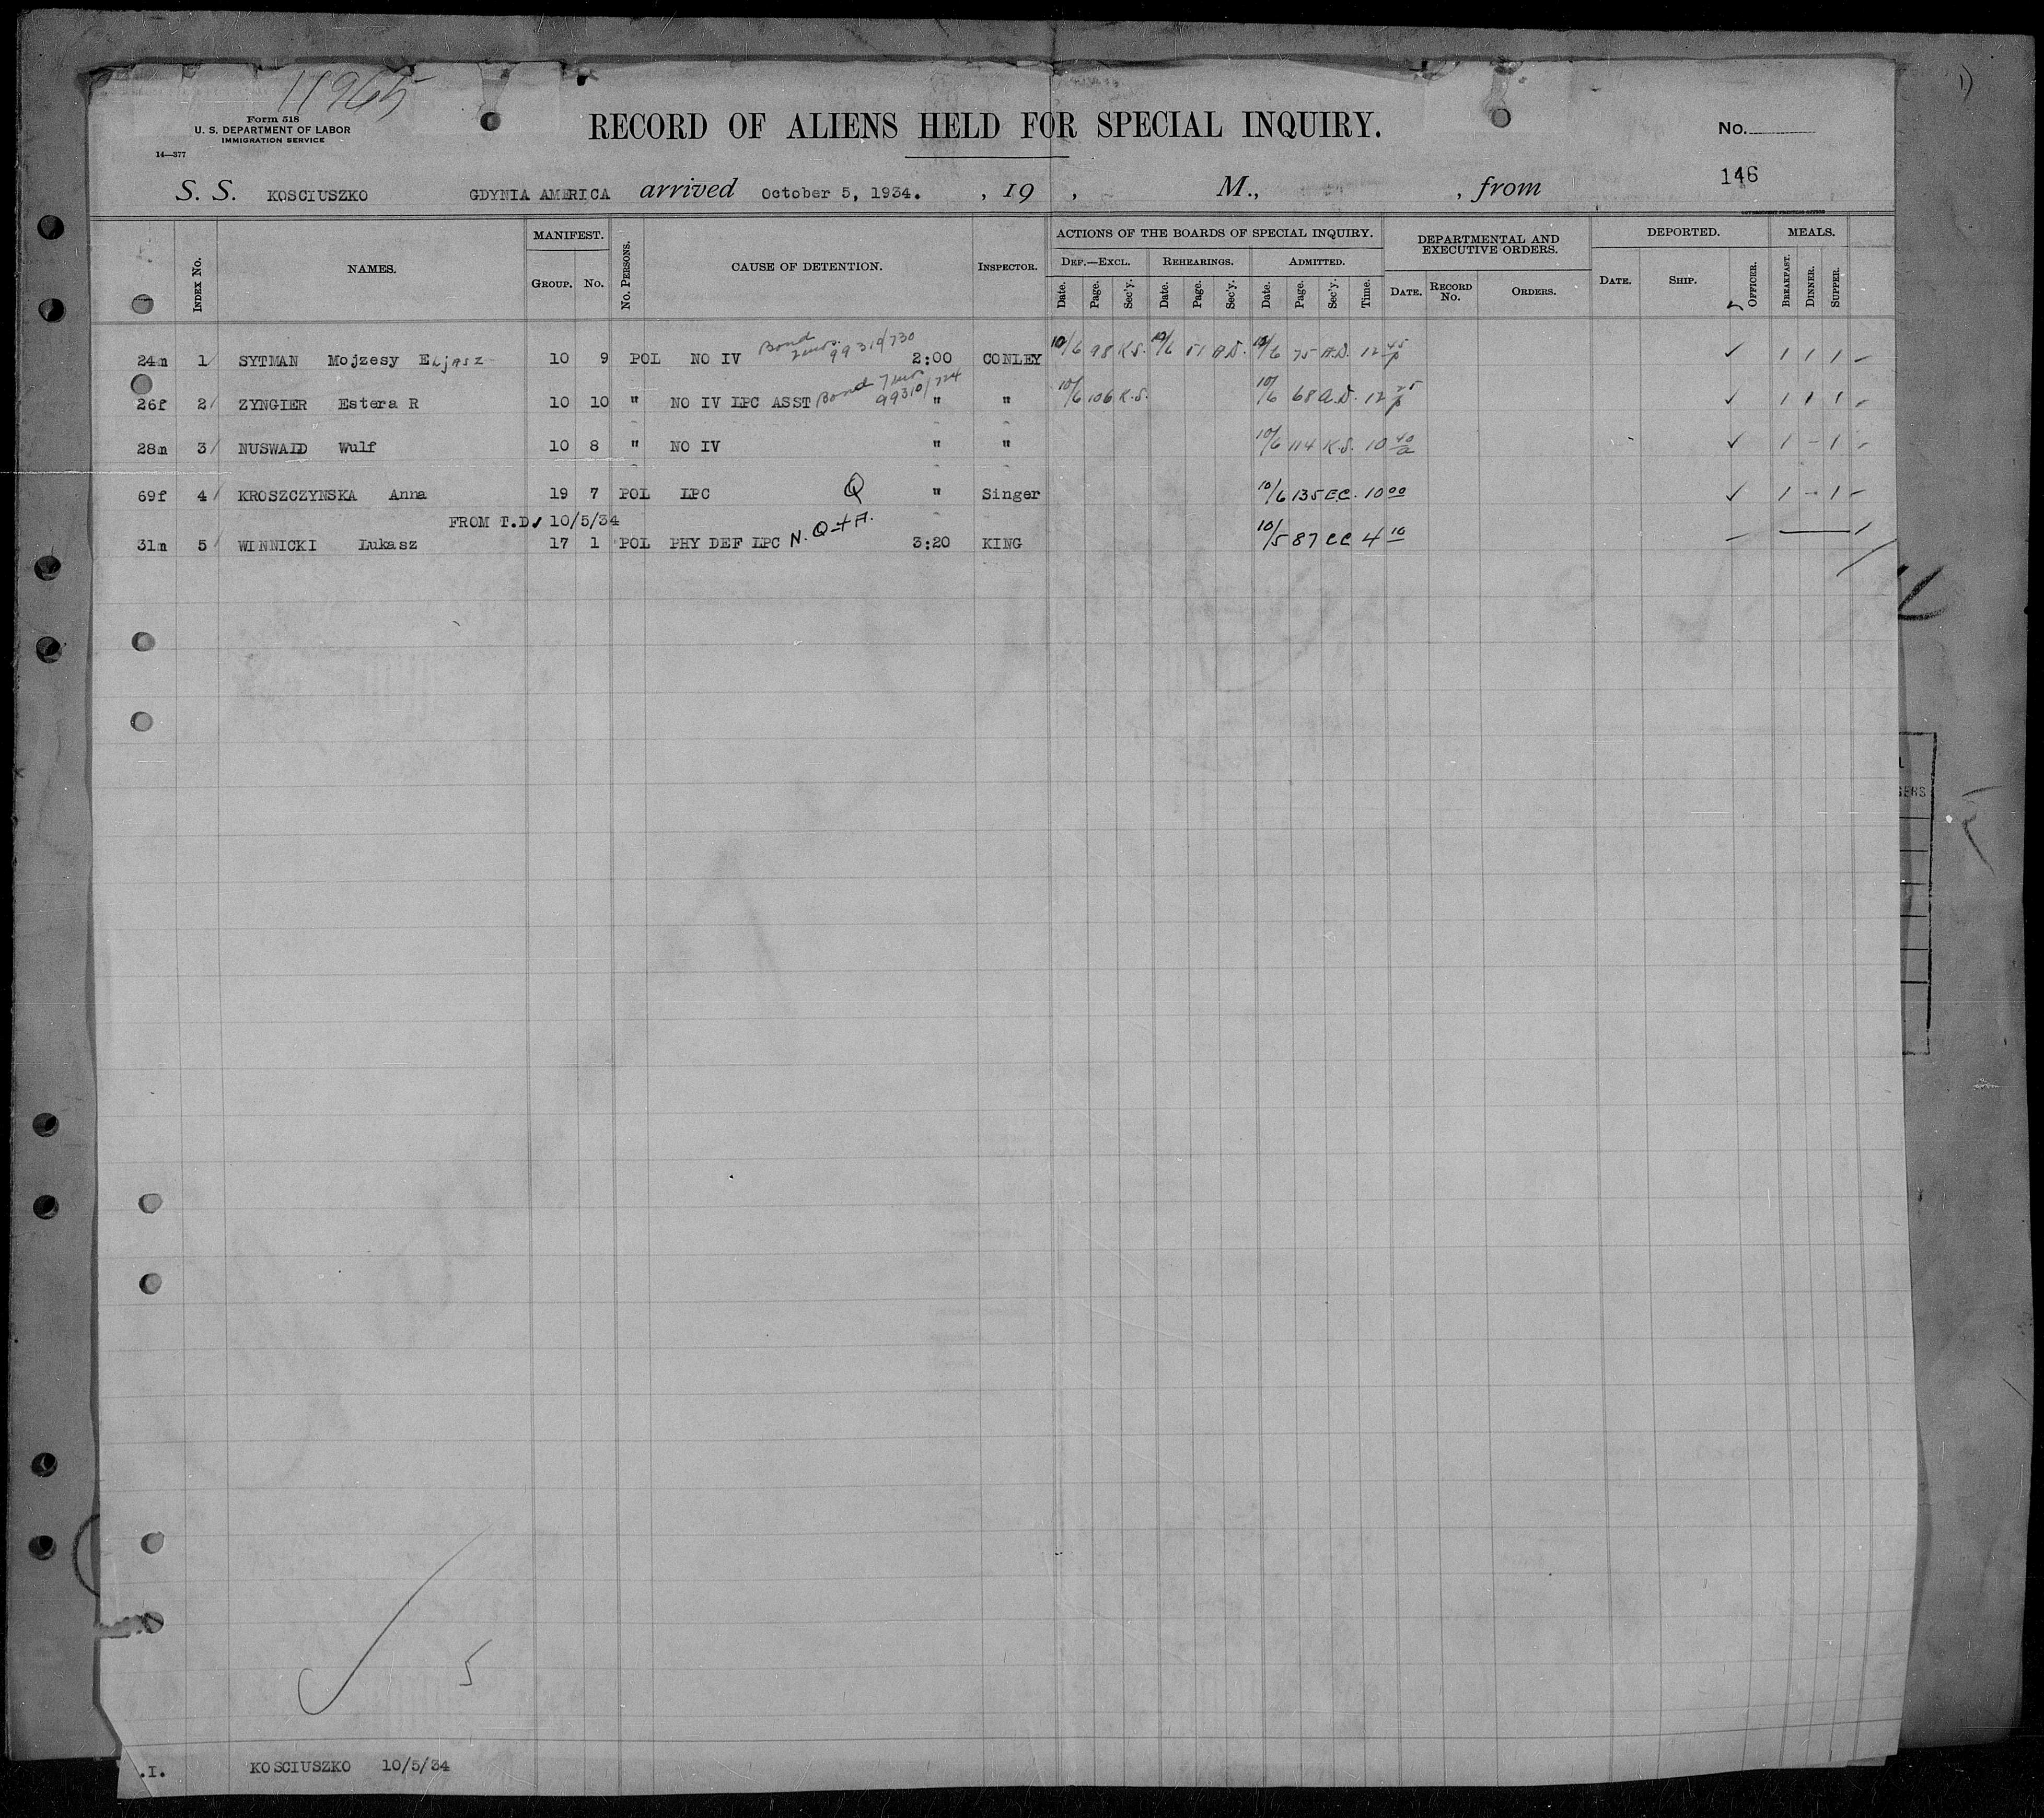 11965
Form 518
U. S. DEPARTMENT OF LABOR
IMMIGRATION SERVICE
14—377
RECORD OF ALIENS HELD FOR SPECIAL INQUIRY.
No.
146
S. S. KOSCIUSZKO GDYNIA AMERICA arrived October 5, 1934. , 19 , M., , from
GOVERNMENT PRINTING OFFICE
INDEX NO. NAMES. MANIFEST. GROUP. NO. NO. PERSONS. CAUSE OF DETENTION. INSPECTOR.
ACTIONS OF THE BOARDS OF SPECIAL INQUIRY. DEF.—EXCL. REHEARINGS. ADMITTED.
Date. Page. Sec'y. Date. Page. Sec'y. Date. Page. Sec'y. Time.
DEPARTMENTAL AND EXECUTIVE ORDERS. DATE. RECORD NO. ORDERS.
DEPORTED. DATE. SHIP. OFFICER.
MEALS. BREAKFAST. DINNER. SUPPER.
Bond
99310/730
24m 1 SYTMAN Mojzesy Eljasz 10 9 POL NO IV 2:00 CONLEY 10/6 98 K.S. 10/6 51 A.D. 10/6 75 A.D. 12 45 p
26f 2 ZYNGIER Estera R 10 10 " NO IV LPC ASST Bond 99310/724 " " 10/6 106 K.S. 10/6 68 A.D. 12 25 p
28m 3 NUSWALD Wulf 10 8 " NO IV " " 10/6 114 K.S. 10 40 a
69f 4 KROSZCZYNSKA Anna 19 7 POL LPC Q " Singer 10/6 135 E.C. 10 00
FROM T.D. 10/5/34
31m 5 WINNICKI Lukasz 17 1 POL PHY DEF LPC N. Q+A. 3:20 KING 10/5 87 CC 4 10
5
.I. KOSCIUSZKO 10/5/34